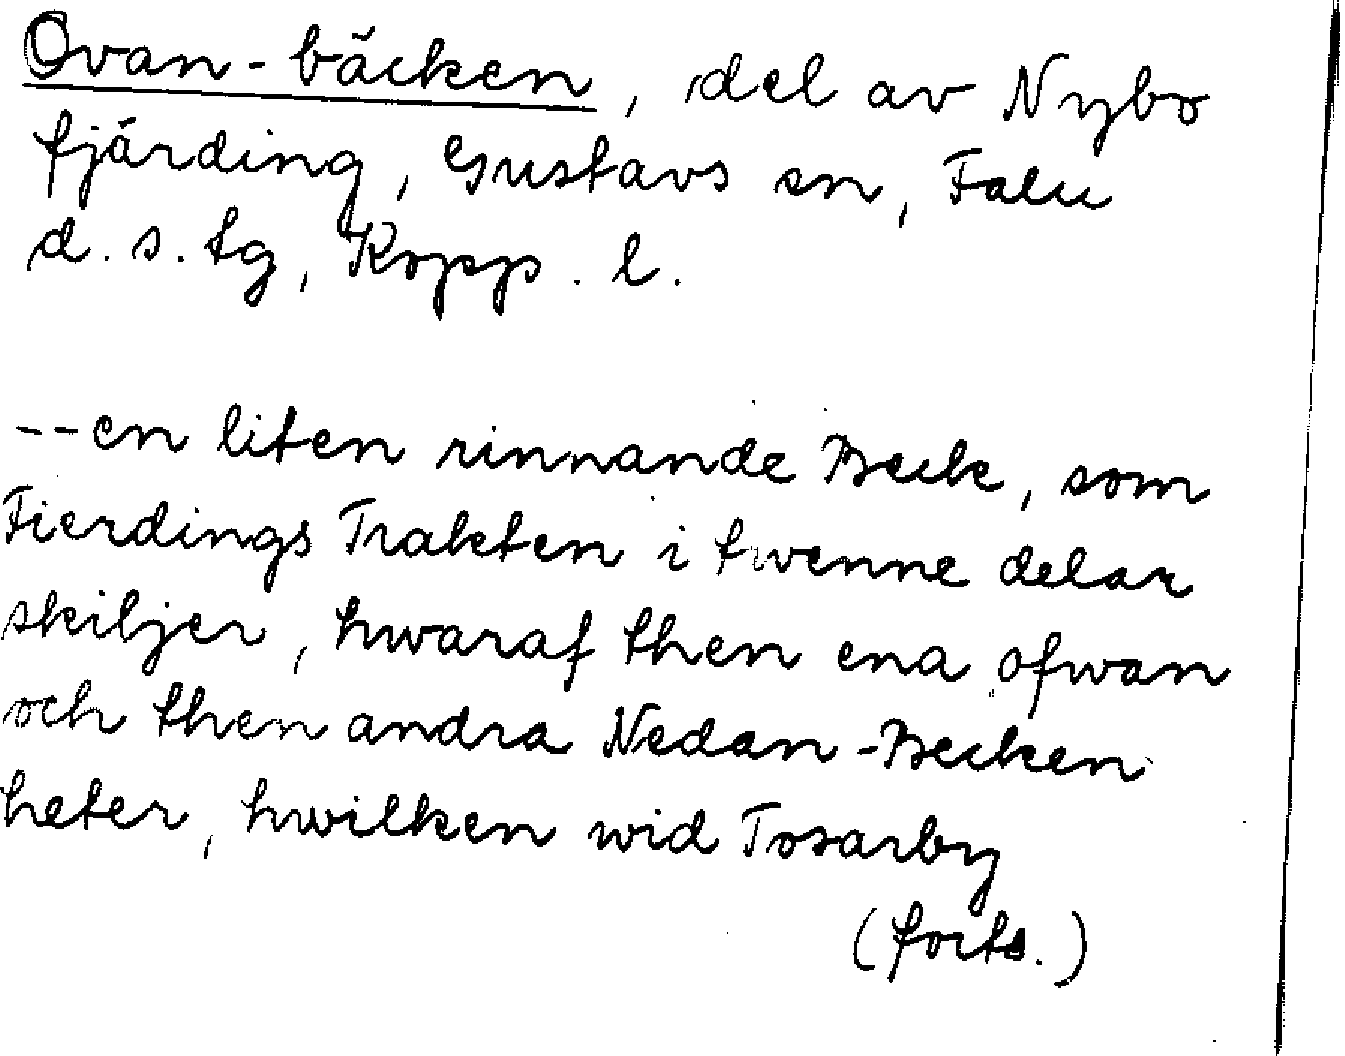 Ovan-bäcken, del av Nybo
fjärding, Gustavs sn, Falu
d. s. tg, Kopp. l.
--en liten rinnande Beck, som
Fierdings Trakten i twenne delar
skiljer, hwaraf then ena ofwan
och then andra Nedan-Becken
heter, hwilken wid Tosarby
(forts.)